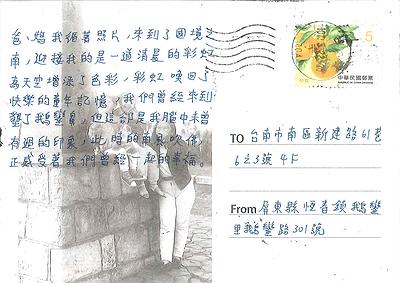 爸,當我循著照片,來到了國境之
南,迎接我的是一道清晨的彩虹
為天空增添了色彩,彩虹喚回了
快樂的童年記憶,我們曾經來到
墾丁鵝鑾鼻,但這部是我腦中未曾
有過的印象,此時的南泉吹佛,
正感受著我們曾經一起的幸福。
5
中華民國郵票
TO 台南市南區新建路61巷
6之3號 4F
From 屏東縣恆春鎮鵝鑾
里鵝鑾路301號